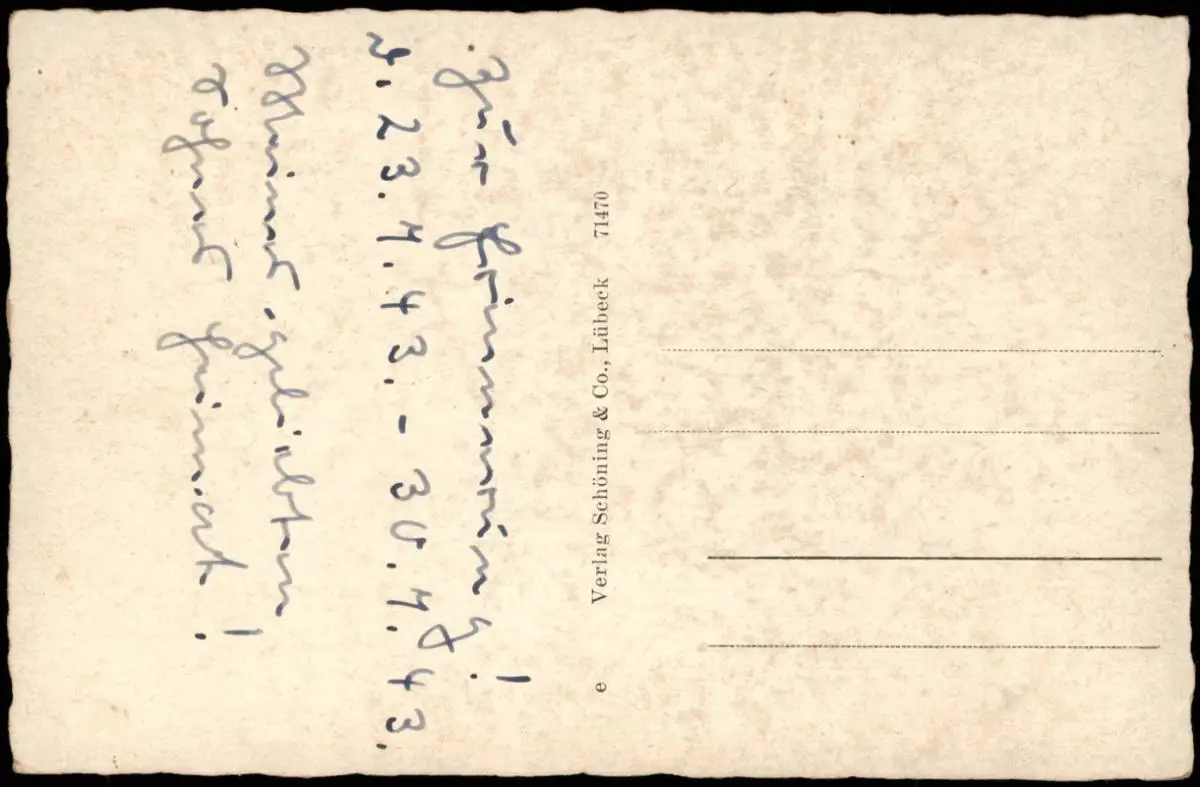 Zur Erinnerung!
v. 23.7.43. - 30.7.43.
Meines geliebten
Sohnes Heimat!
e Verlag Schöning & Co., Lübeck 71470